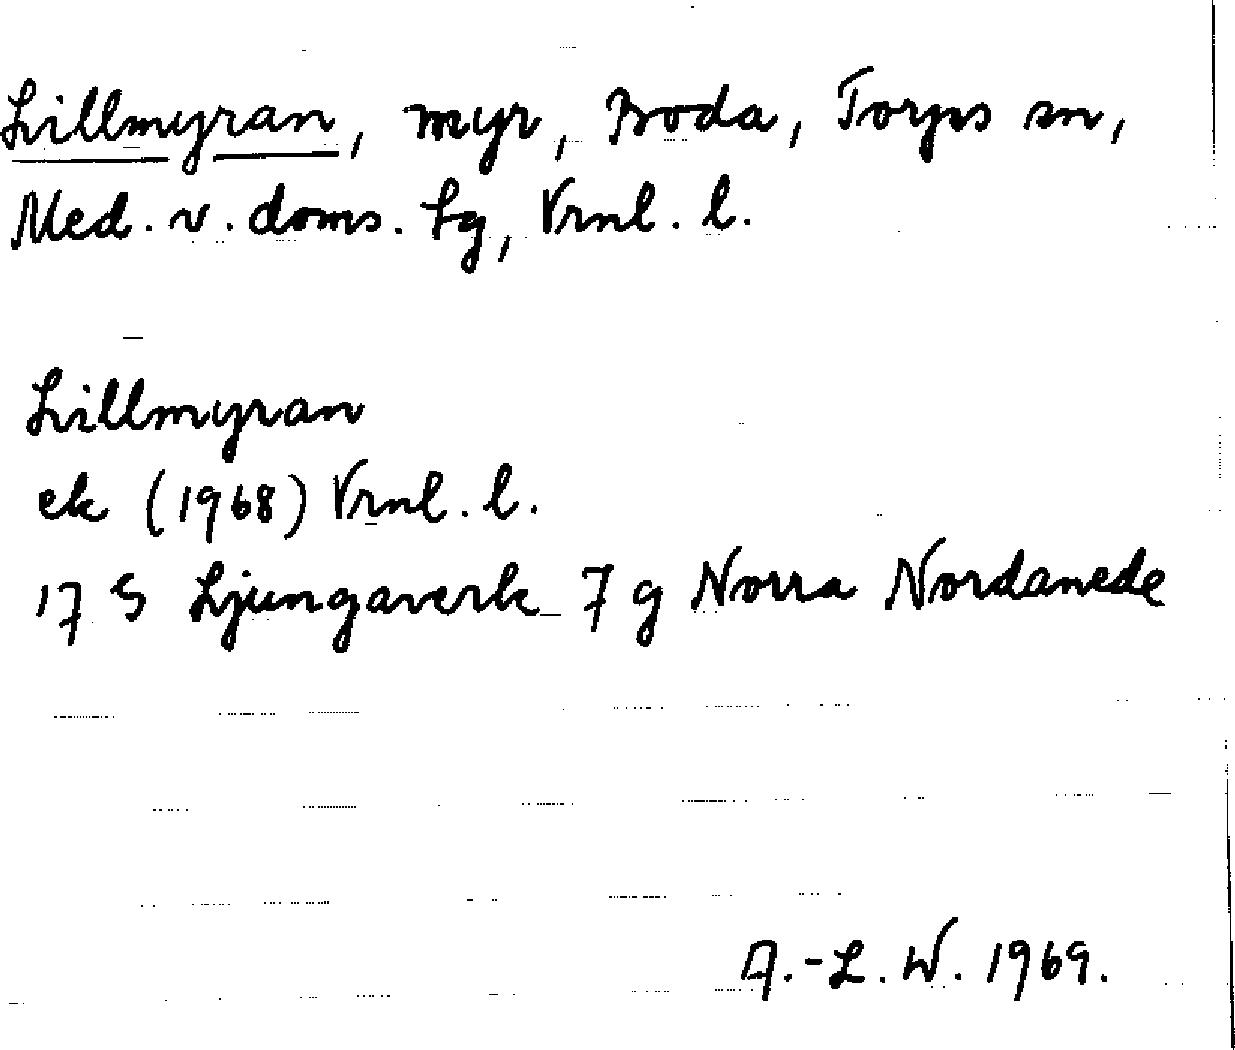 Lillmyran, myr, Boda, Torps sn,
Med. v. doms. sg, Vrnl. l.
Lillmyran
ek (1968) Vrnl. l.
17 G Ljungaverk 7 g Norra Nordanede
A.-L. W. 1969.